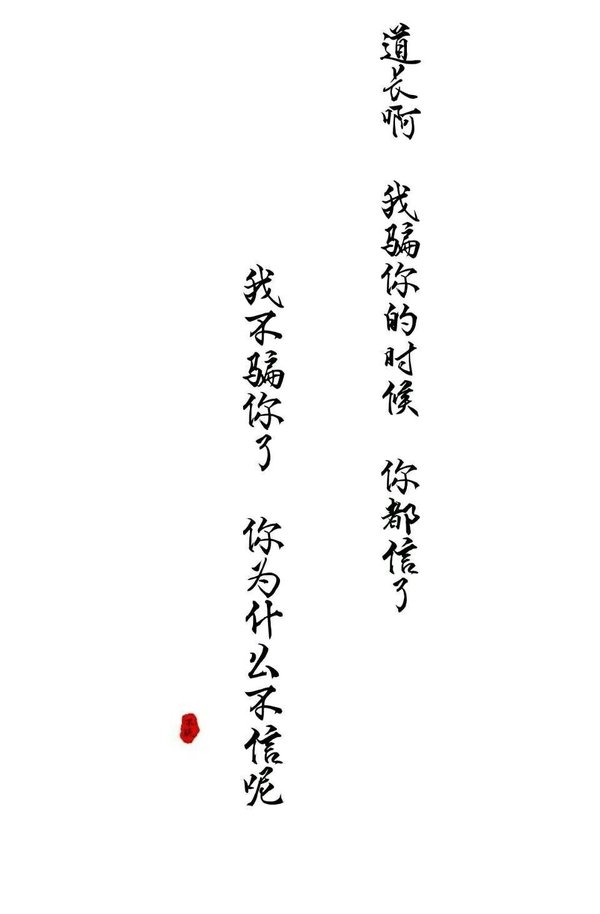 道长啊　我骗你的时候　你都信了
我不骗你了　你为什么不信呢